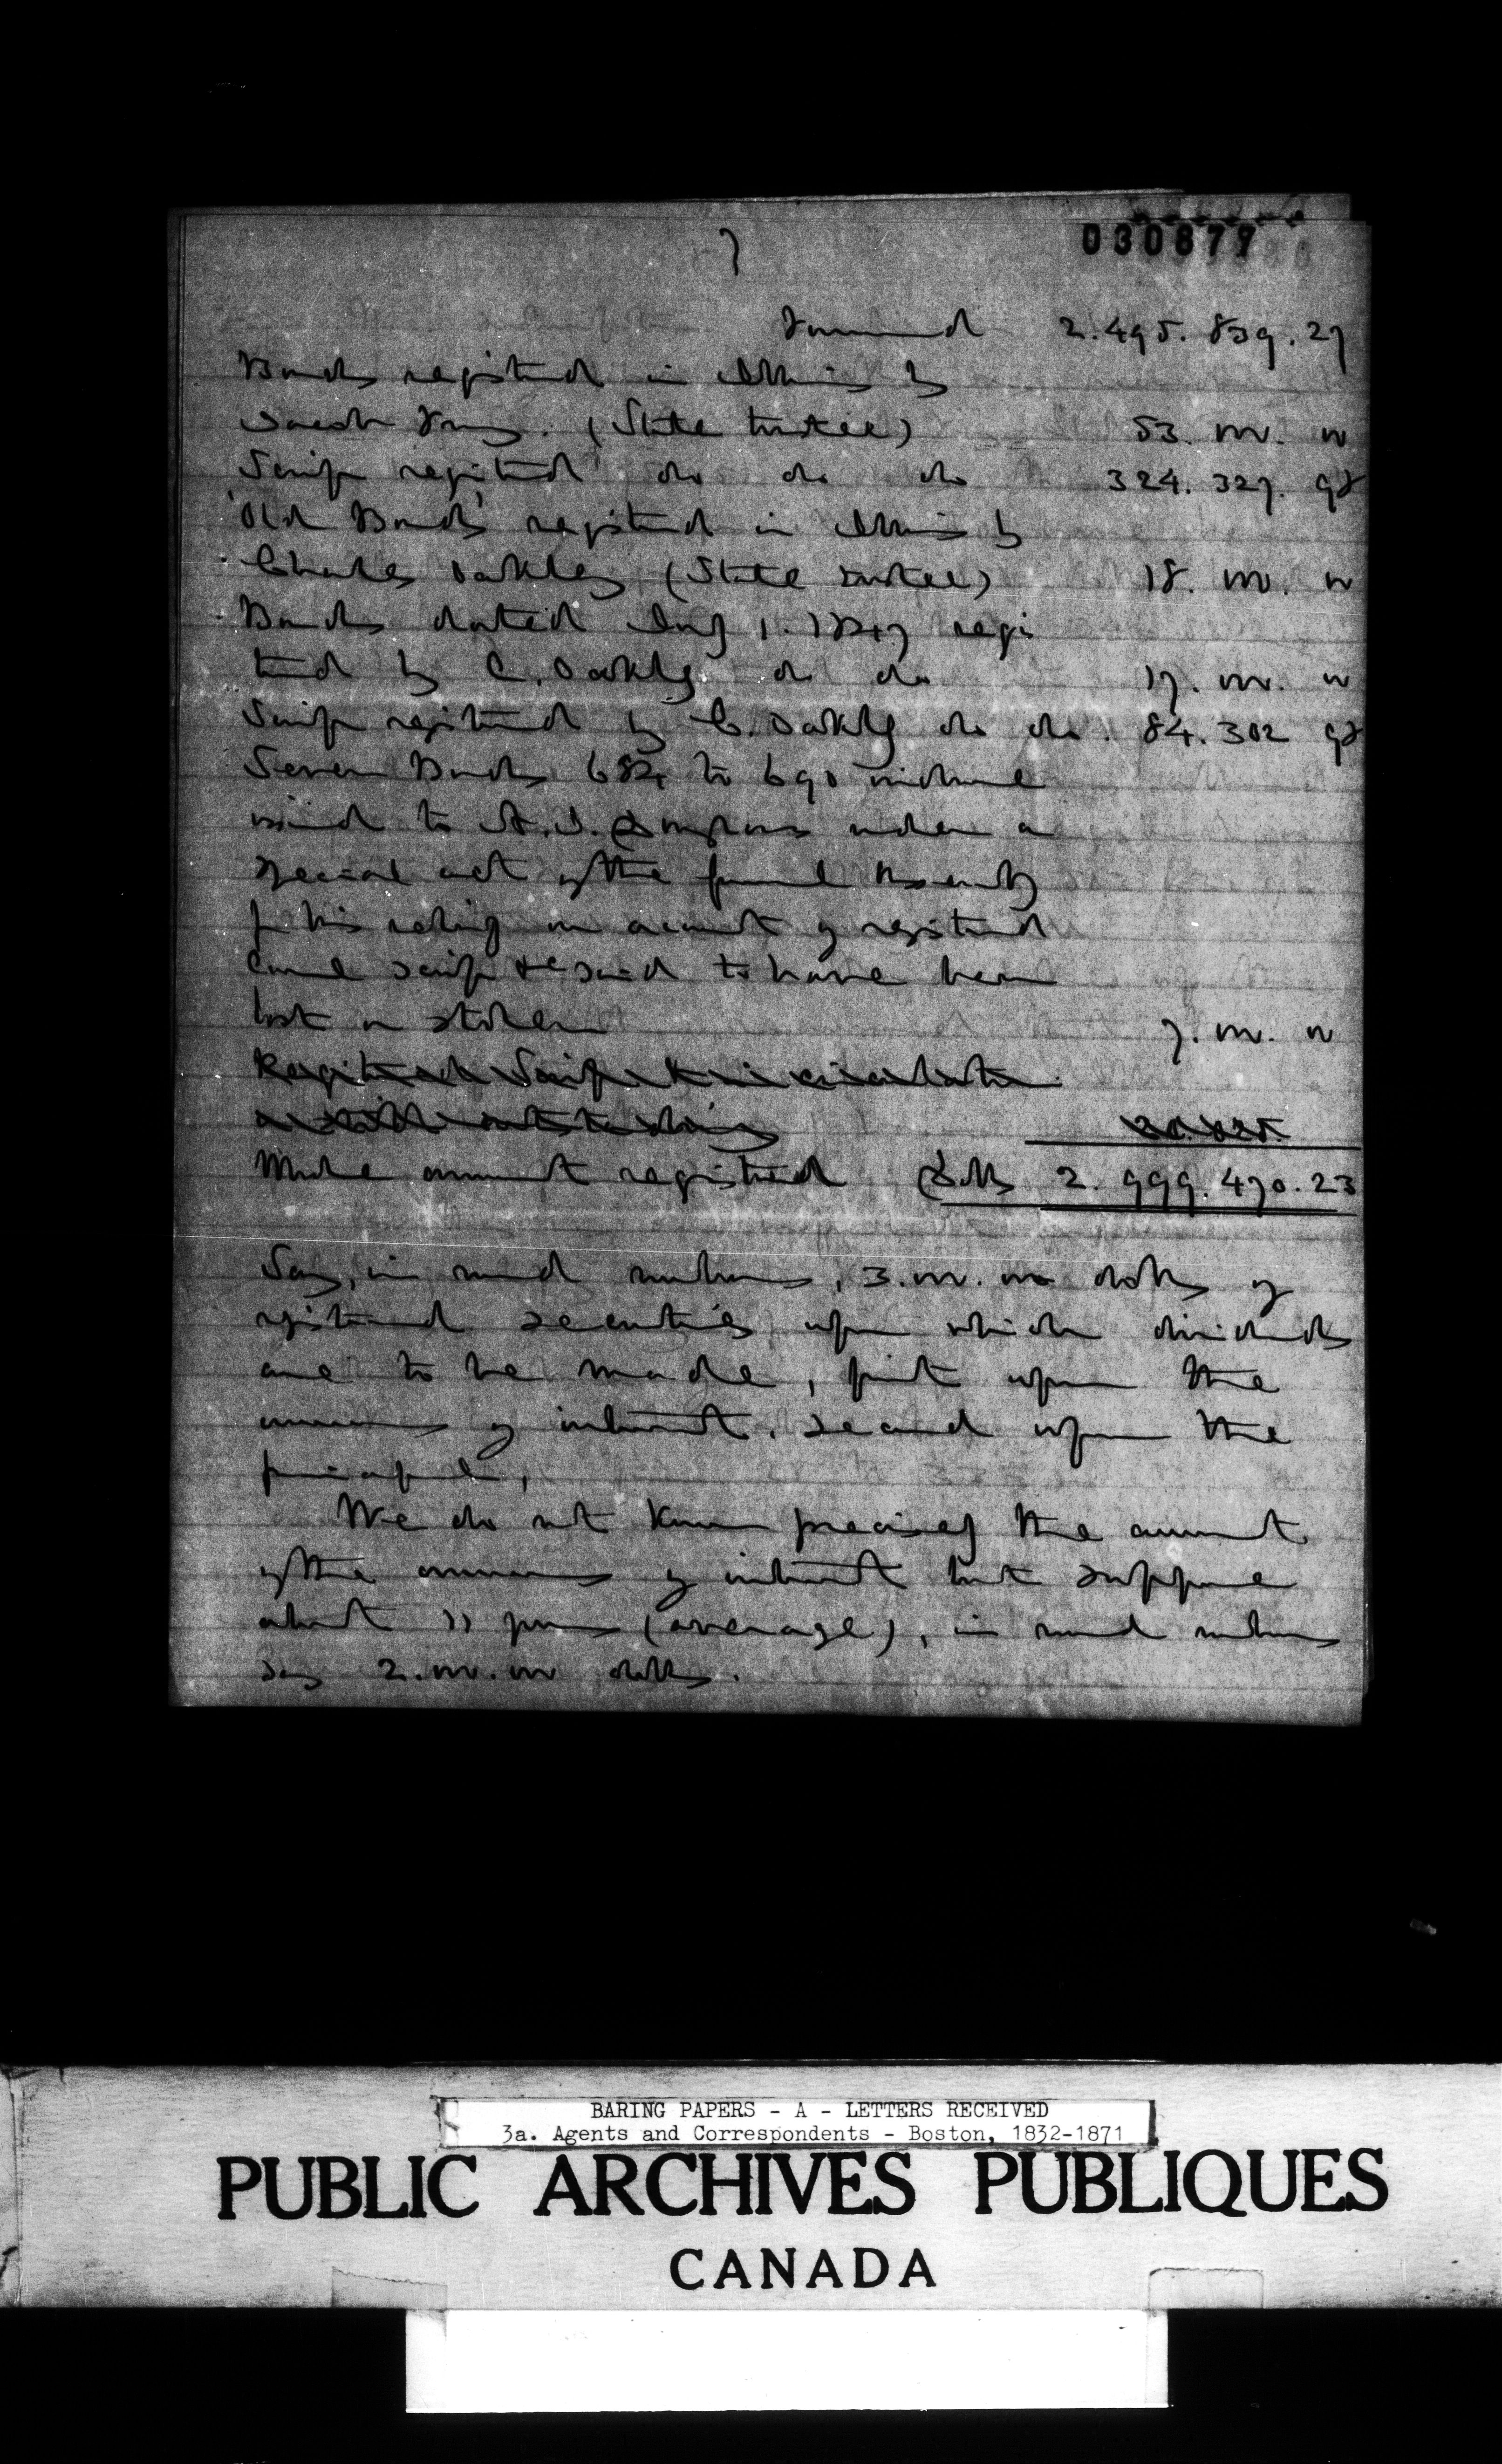 7
030877
Forward 2.495.839.27
Bonds registered in Illinois by
Jacob Fry. (State trustee) 53.000.00
Scrip registered do do do 324.327.98
'Old Bonds' registered in Illinois by
Charles Oakley (State trustee) 18.000.00
Bonds dated July 1. 1847 regis
tered by C. Oakley do do 17.000.00
Scrip registered by C. Oakley do do. 84.302 98
Seven Bonds 684 to 690 inclusive
issued to under a
special act of the general Assembly
for his relief on account of registered
canal scrip &c said to have been
lost or stolen 7.000.00
Registered Scrip in circulation
outstanding
Make amount registered Dolls 2.999.470.23
Say, in round numbers, 3.000.000 dolls of
registered securities upon which dividends
are to be made, first upon the
arrears of interest, second upon the
principal,
We do not know precisely the amount
of the arrears of interest but suppose
about 11 years (average), in round numbers
say 2.000.000 dolls.
BARING PAPERS - A - LETTERS RECEIVED
3a. Agents and Correspondents - Boston, 1832-1871
PUBLIC ARCHIVES PUBLIQUES
CANADA